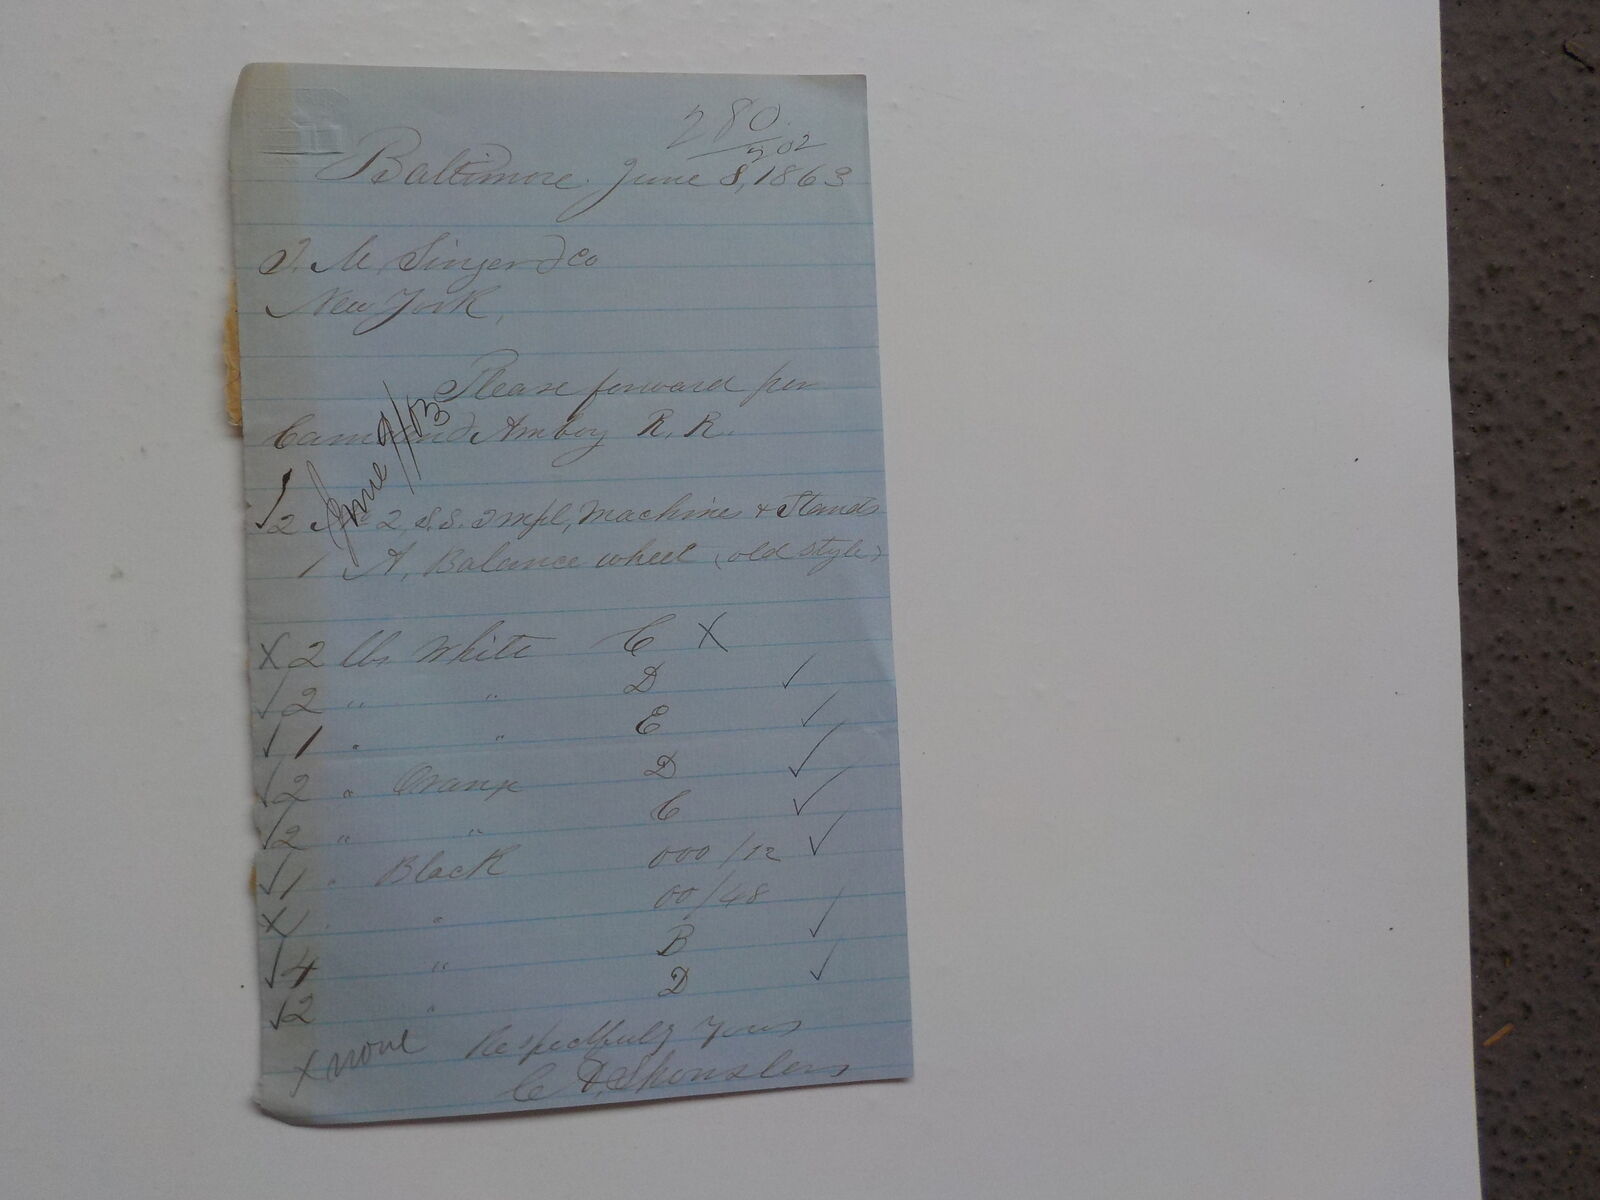 280
202
Baltimore June 8, 1863
I. M. Singer & Co
New York,
Please forward per
Camd and Amboy R. R.
June 9/63
√ 2 No 2, S.S. Impl, Machines & Stands
1 A, Balance wheel (old style)
X 2 lbs White C X
√ 2 " " D √
√ 1 " " E √
√ 2 " Orange D √
√ 2 " " C √
√ 1 " Black 000/12 √
X 1 " " 00/48
√ 4 " B √
√ 2 " D √
X none
Respectfully Yours